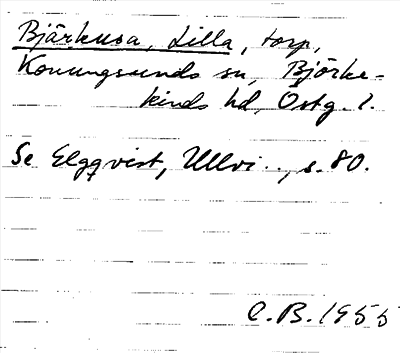 Björkusa, Lilla, torp,
Konungsunds sn, Björke-
kinds hd, Östg. l.
Se Elgqvist, Ullvi.., s. 80.
C.B. 1955